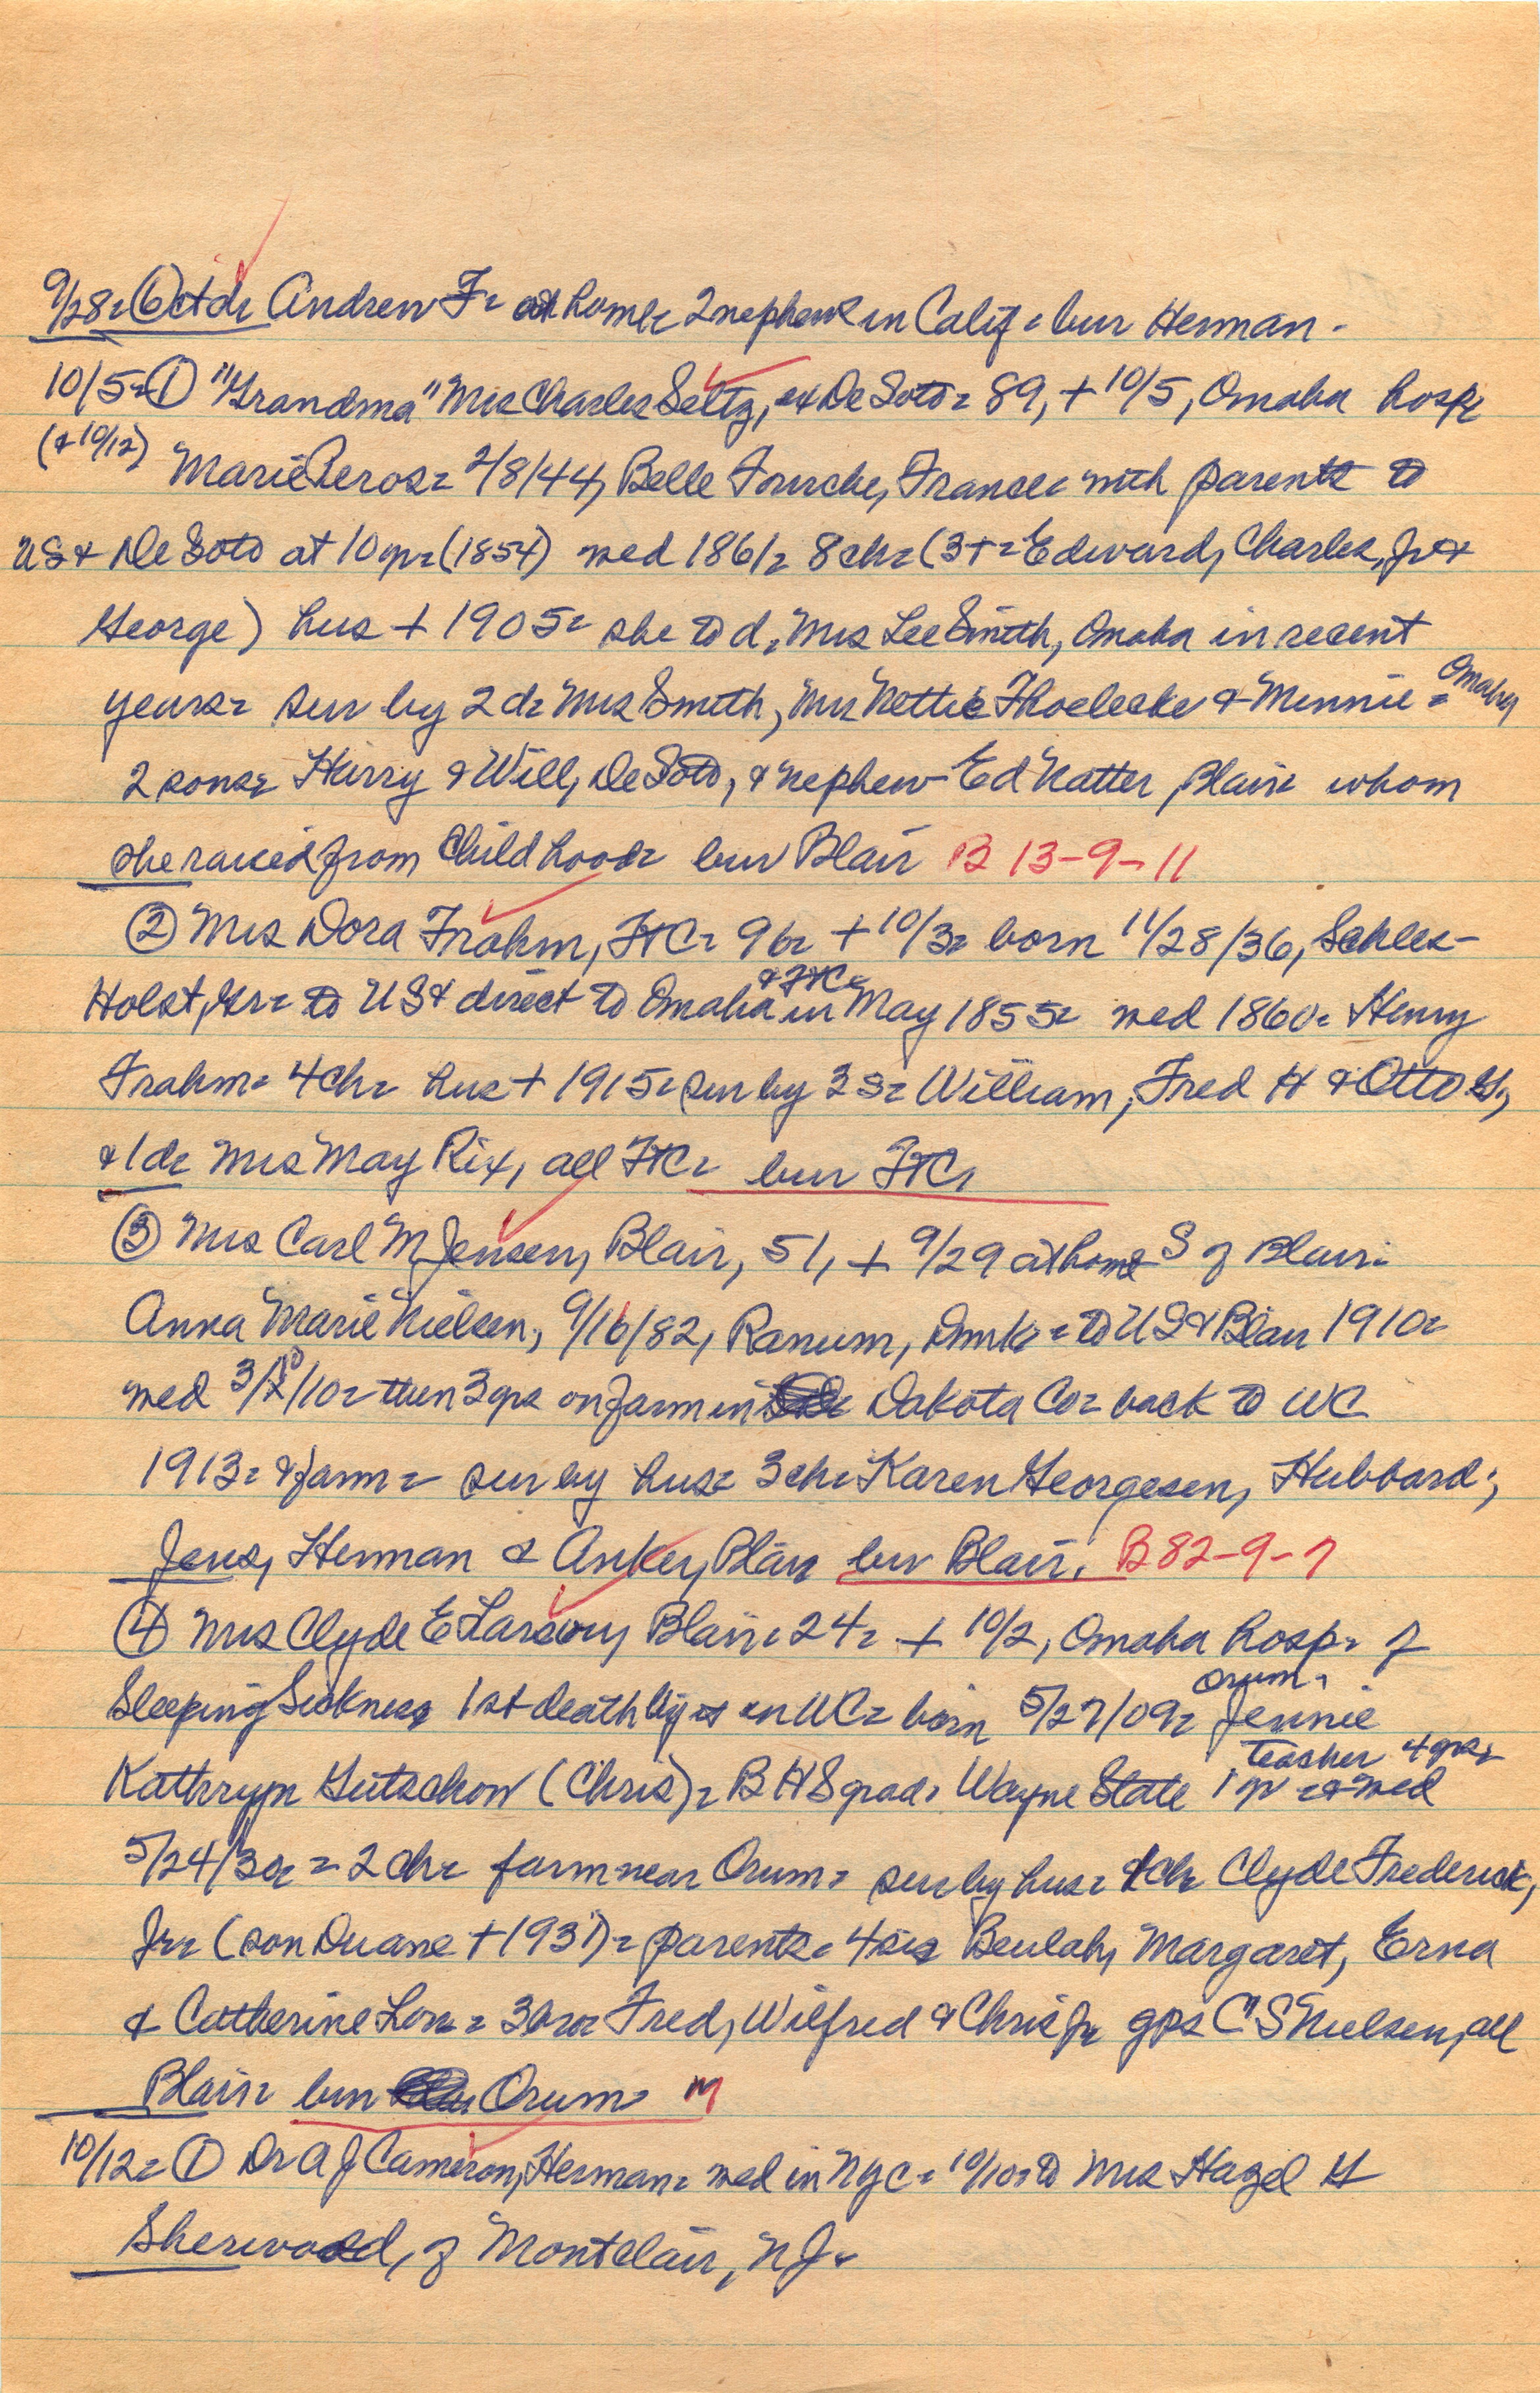 9/28 = ⑥ ctd = Andrew F = at home = 2 nephews in Calif = bur Herman.
10/5 = ① "Grandma" Mrs Charles Seltz, ex De Soto = 89, + 10/5, Omaha hosp =
(& 10/12) Marie = 2/8/44, Belle Fourche, France = with parents to
US & De Soto at 10 yr = (1854) wed 1861 = 8 ch = (3 + = Edward, Charles, Jr &
George) hus + 1905 = she to d, Mrs Lee Smith, Omaha in recent
years = sur by 2 d = Mrs Smith, Mrs Nettie & Minnie = Omaha
2 sons = Harry & Will, De Soto, & nephew - Ed Natter, Blair whom
she raised from Childhood = bur Blair B 13-9-11
② Mrs Dora Frahm, FtC = 96 = + 10/3 = born 11/28/36, Schles-
Holst, Gr = to US & direct to Omaha & FtC = in May 1855 = wed 1860 = Henry
Frahm = 4 ch = hus + 1915 = sur by 3 s = William, Fred H & Otto G,
& 1 d = Mrs May Rix, all FtC = bur FtC,
③ Mrs Carl M Jensen, Blair, 51, + 9/29 at home S of Blair =
Anna Marie Nielsen, 9/16/82, Ranum, Dnmk = to US & Blair 1910 =
wed 3/ /10 = then 3 yrs on farm in Dakota Co = back to WC
1913 = & farm = sur by hus = 3 ch = Karen Georgesen, Hubbard;
Jens, Herman & Anker, Blair bur Blair. B 82-9-7
④ Mrs Clyde E Larson, Blair = 24 = + 10/2, Omaha hosp = of
Sleeping Sickness 1st death by it in WC = born 5/27/09 = Orum, Jennie
Kathryn Gutschow (Chris) = BHS grad, Wayne State 1 yr = teacher 4 yrs = & wed
5/24/30 = = 2 ch = farm near Orum = sur by hus = 1 ch Clyde Frederick,
Jr = (son Duane + 1931) = parents = 4 sis Beulah, Margaret, Erna
& Catherine Lou = 3 bro = Fred, Wilfred & Chris Jr gps C S Nielsen, all
Blair = bur Orum = M
10/12 = ① Dr A J Cameron, Herman = wed in NYC = 10/10 = to Mrs Hazel G
Sherwood, of Montclair, NJ.